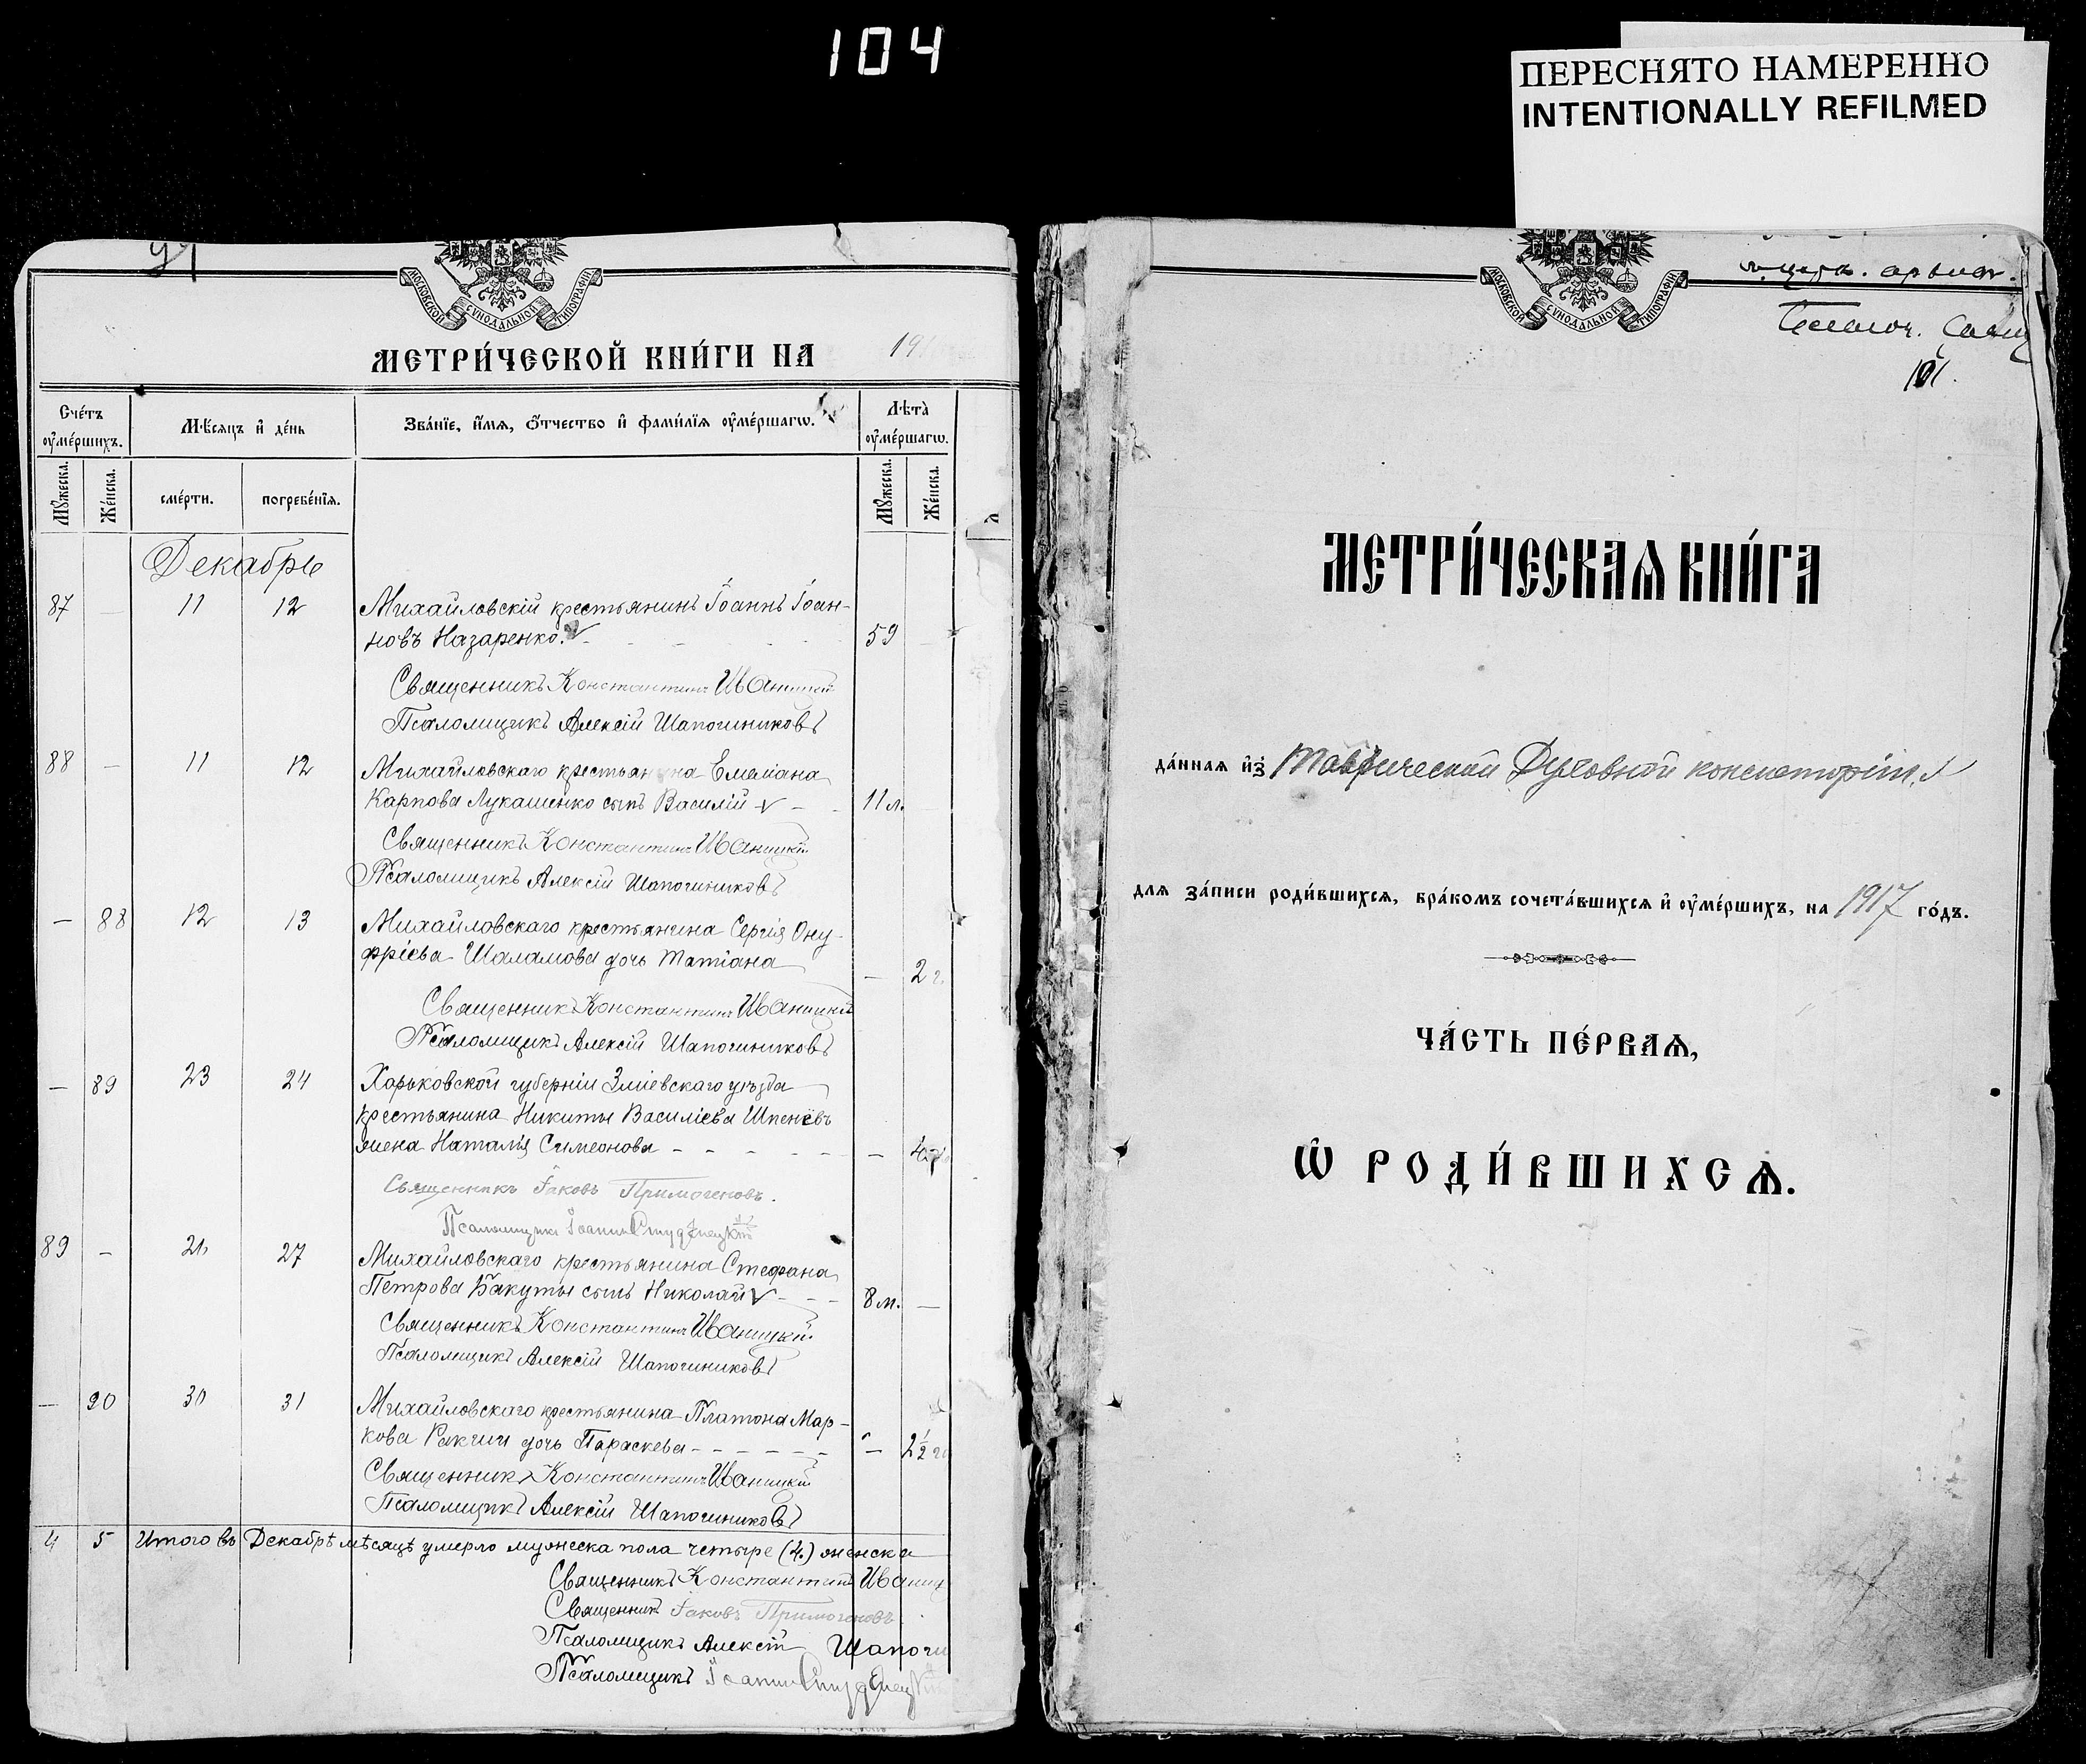 104
ПЕРЕСНЯТО НАМЕРЕННО
INTENTIONALLY REFILMED
МОСКОВСКОЙ СѴНОДАЛЬНОЙ ТИПОГРАФІИ
МЕТРИ́ЧЕСКОЙ КНИ́ГИ НА 19
Сче́тъ оу҆ме́ршихъ.
Мѣ́сяцъ и҆ де́нь
Зва́нїе, и҆́мѧ, ѻ҆́тчество и҆ фами́лїѧ оу҆ме́ршагѡ.
Лѣта̀ оу҆ме́ршагѡ.
Мꙋ́жеска.
Же́нска.
сме́рти.
погребе́нїѧ.
Мꙋ́жеска.
Же́нска.
Декабрь
87 — 11 12 Михайловскій крестьянинъ Іоаннъ Іоан-
новъ Назаренко. 59
Священникъ Константинъ Иваницкій
Псаломщикъ Алексій Шапочниковъ
88 — 11 12 Михайловскаго крестьянина Емеліана
Карпова Лукашенко сынъ Василій 11 л.
Священникъ Константинъ Иваницкій
Псаломщикъ Алексій Шапочниковъ
— 88 12 13 Михайловскаго крестьянина Сергія Ону-
фріева Шаламова дочь Татіана — 2 г.
Священникъ Константинъ Иваницкій
Псаломщикъ Алексій Шапочниковъ
— 89 23 24 Харьковской губерніи Зміевскаго уѣзда
крестьянина Никиты Василіева Шпенёвъ
жена Наталія Симеонова — — — — — —
Священникъ Іаковъ Примогеновъ.
Псаломщикъ Іоаннъ
89 — 27 Михайловскаго крестьянина Стефана
Петрова Бакуты сынъ Николай 8 м. —
Священникъ Константинъ Иваницкій
Псаломщикъ Алексій Шапочниковъ
— 90 30 31 Михайловскаго крестьянина Платона Мар-
кова дочь Параскева — — — — — — — 2½
Священникъ Константинъ Иваницкій
Псаломщикъ Алексій Шапочниковъ
4 5 Итого въ Декабрѣ мѣсяцѣ умерло мужеска пола четыре (4.) женска
Священникъ Константинъ Иваниц
Священникъ Іаковъ Примогеновъ.
Псаломщикъ Алексій Шапочн
Псаломщикъ Іоаннъ
МОСКОВСКОЙ СѴНОДАЛЬНОЙ ТИПОГРАФІИ
101.
МЕТРИ́ЧЕСКАѦ КНИ́ГА
да́нная и҆з̾ Таврической Духовной консисторіи.
для за́писи роди́вшихсѧ, бра́комъ сочета́вшихсѧ и҆ оу҆ме́ршихъ, на 1917 го́дъ.
ЧА́СТЬ ПЕ́РВАѦ,
Ѡ҆ РОДИ́ВШИХСѦ.